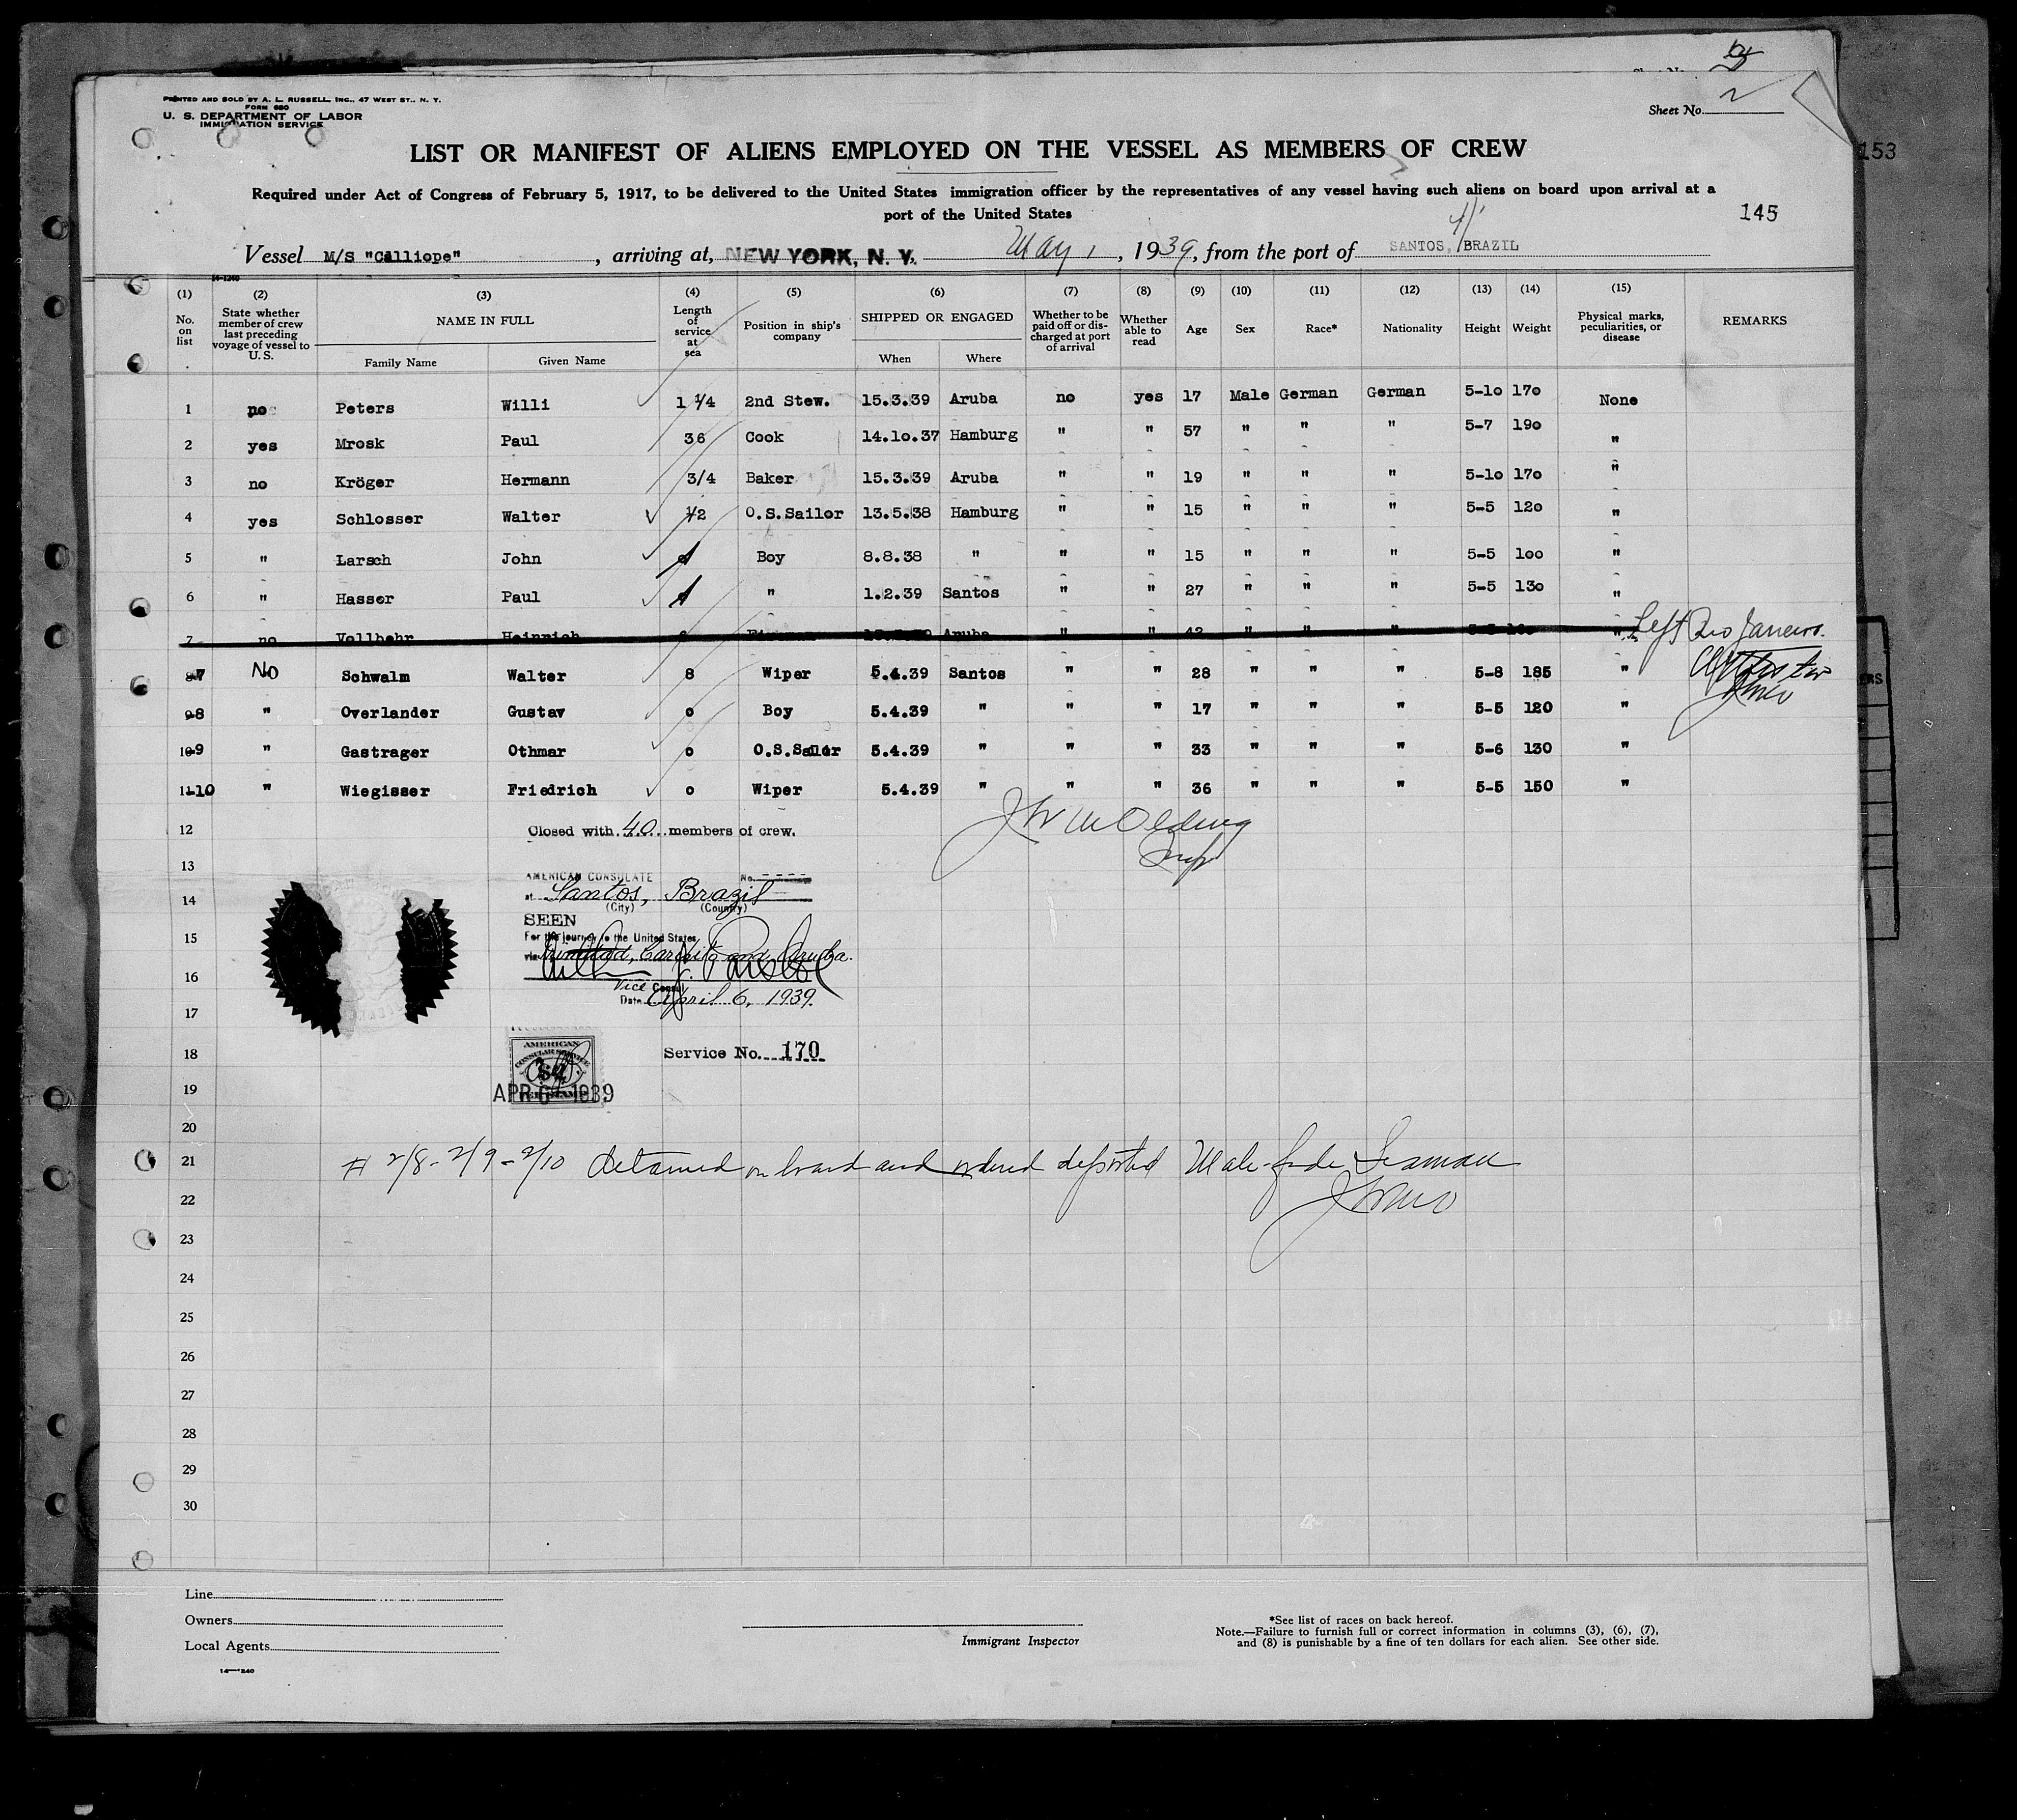 PRINTED AND SOLD BY A. L. RUSSELL, INC., 47 WEST ST., N. Y.
FORM 680
U. S. DEPARTMENT OF LABOR
IMMIGRATION SERVICE
Sheet No. 2
153
LIST OR MANIFEST OF ALIENS EMPLOYED ON THE VESSEL AS MEMBERS OF CREW
Required under Act of Congress of February 5, 1917, to be delivered to the United States immigration officer by the representatives of any vessel having such aliens on board upon arrival at a
port of the United States
145
Vessel M/S "Calliope", arriving at, NEW YORK, N. Y. May 1, 1939, from the port of SANTOS, BRAZIL
14-1240
(1) (2) (3) (4) (5) (6) (7) (8) (9) (10) (11) (12) (13) (14) (15)
No. on list State whether member of crew last preceding voyage of vessel to U. S. NAME IN FULL Length of service at sea Position in ship's company SHIPPED OR ENGAGED Whether to be paid off or discharged at port of arrival Whether able to read Age Sex Race* Nationality Height Weight Physical marks, peculiarities, or disease REMARKS
Family Name Given Name When Where
1 no Peters Willi 1 1/4 2nd Stew. 15.3.39 Aruba no yes 17 Male German German 5-10 170 None
2 yes Mrosk Paul 36 Cook 14.10.37 Hamburg " " 57 " " " 5-7 190 "
3 no Kröger Hermann 3/4 Baker 15.3.39 Aruba " " 19 " " " 5-10 170 "
4 yes Schlosser Walter 1/2 O.S.Sailor 13.5.38 Hamburg " " 15 " " " 5-5 120 "
5 " Larsch John Boy 8.8.38 " " " 15 " " " 5-5 100 "
6 " Hasser Paul " 1.2.39 Santos " " 27 " " " 5-5 130 "
7 no Vollbehr Heinrich Fireman Aruba " " 42 " " " " Left Rio Janeiro.
8 7 No Schwalm Walter 8 Wiper 5.4.39 Santos " " 28 " " " 5-8 185 "
9 8 " Overlander Gustav 0 Boy 5.4.39 " " " 17 " " " 5-5 120 "
10 9 " Gastrager Othmar 0 O.S.Sailor 5.4.39 " " " 33 " " " 5-6 130 "
11 10 " Wiegisser Friedrich 0 Wiper 5.4.39 " " " 36 " " " 5-5 150 "
12 Closed with 40 members of crew.
13
AMERICAN CONSULATE No.
14 at Santos, Brazil
(City) (Country)
SEEN
15 For the journey to the United States
via Trinidad, Caripito and Aruba.
16
Vice Consul
Date April 6, 1939.
17
18 AMERICAN CONSULAR SERVICE $2 FEE STAMP Service No. 170
19 APR 6 - 1939
20
21 # 2/8 - 2/9 - 2/10 detained on board and ordered deported Mala-fide Seaman
22 JWM
23
24
25
26
27
28
29
30
Line
Owners
Local Agents
14-1240
Immigrant Inspector
*See list of races on back hereof.
Note.—Failure to furnish full or correct information in columns (3), (6), (7),
and (8) is punishable by a fine of ten dollars for each alien. See other side.